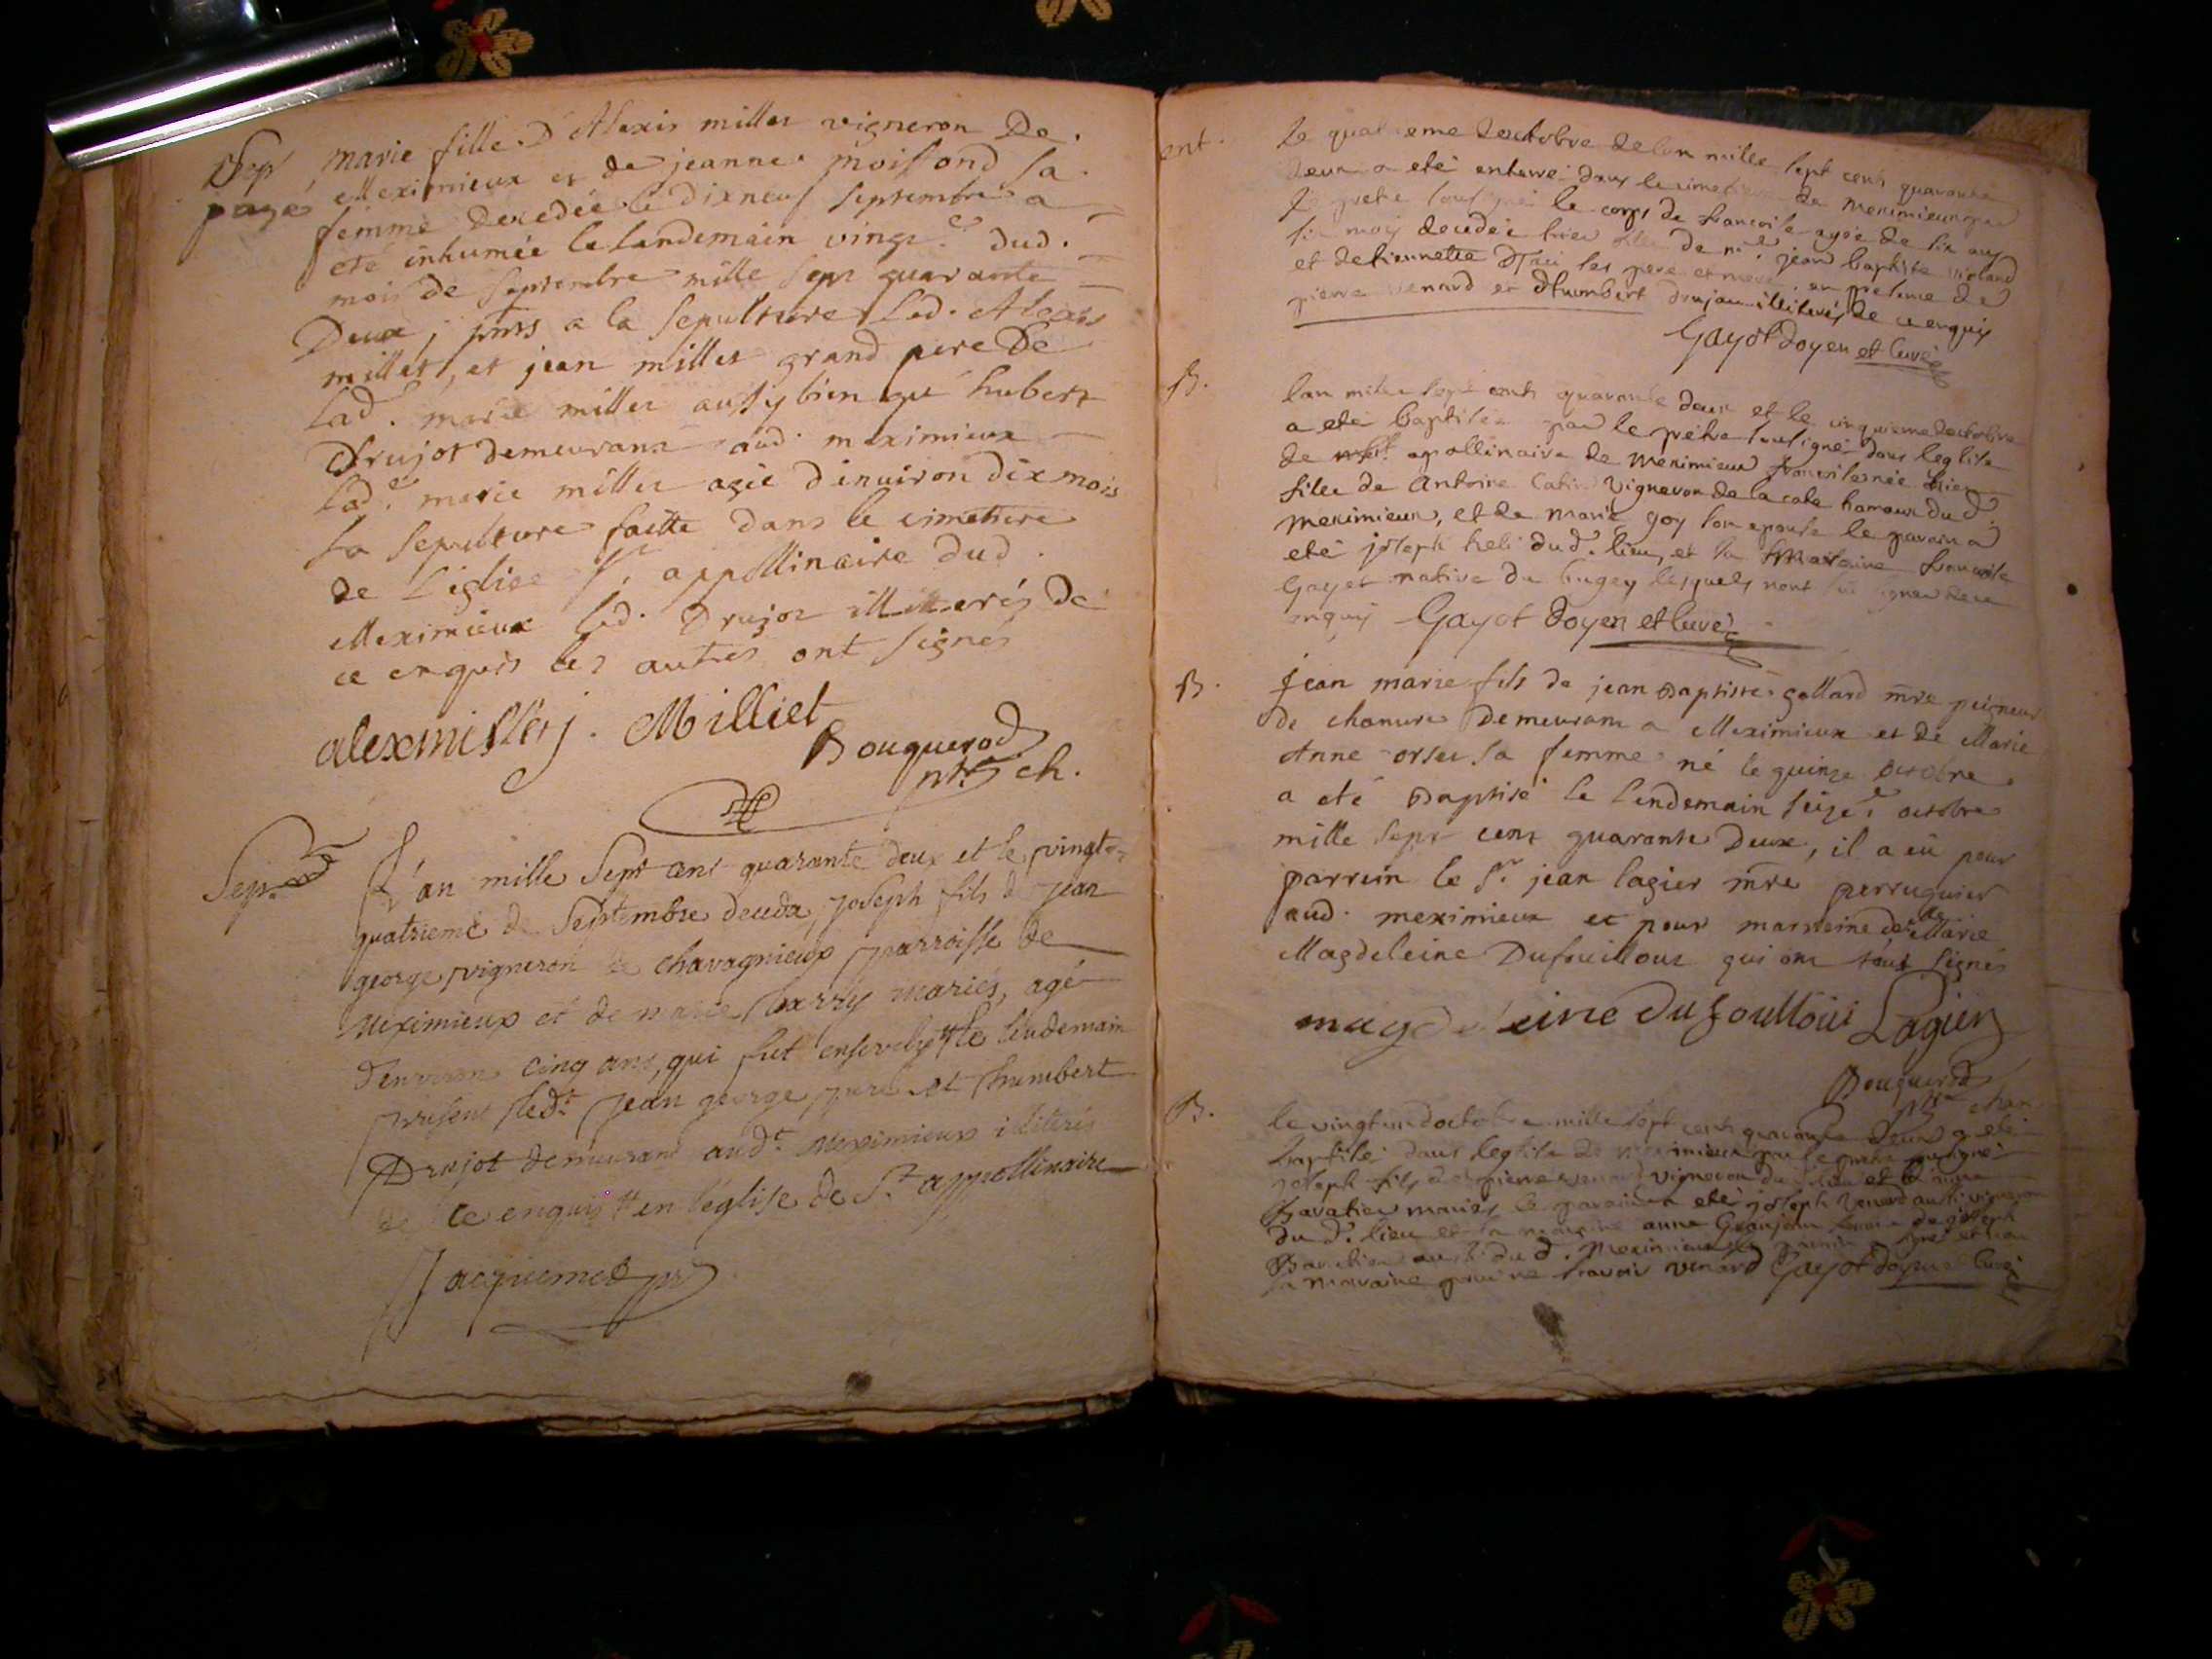 Sep
payé
marie fille D'Alexis millet vigneron De.
Meximieux et de jeanne moissond sa.
femme Decedée le dixneuf septembre a
eté inhumée le landemain vingt.e dud.
mois de septembre mille sept quarante
Deux, pnts a la sepulture led. Alexis
millet, et jean millet grand pere De
lad. marie millet aussy bien que hubert
Drujot demeurant aud. meximieux
lad.e marie millet agée d'enuiron dix mois
la sepulture faitte dans le cimettiere
de L'eglise St. appollinaire dud.
Meximieux led. Drujot illitterés de
ce enquis les autres ont signés
alexmillet j. Milliet
Bouquerod
ptre ch.
Sep.re
L'an mille Sept cent quarante deux et le vingt-
quatrieme de Septembre deceda joseph fils de jean
george vigneron de chavagnieux parroisse de
Meximieux et de marie mariés, agé
d'environ cinq ans, qui fut ensevely # le lendemain
present led.t jean george pere et humbert
Drujot demeurant aud.t Meximieux illiterés
de ce enquis # en l'église de S.t appollinaire
Jacquemet ptre
ent.
Le quatrieme d'octobre de lan mille sept cents quarante
deux a eté enterré dans le cimetiere de Meximieux par
le pretre sousigné le corps de francoise agée de six ans
six mois decedée hier fille de jean baptiste
et detiennette ses pere et mere, en presence de
pierre venard et dhumbert drujau illiterés de ce enquis
Gayot doyen et curé
B.
lan mille sept cents quarante deux et le cinquieme doctobre
a eté baptisée par le prêtre sousigné dans leglise
de St. apollinaire de Meximieux francoise née hier
fille de Antoine Catin vigneron de la cote hameau dud.
Meximieux, et de marie goy son epouse le parain a
eté joseph heli dud. lieu, et la Maraine francoise
Gayet native du bugey lesquels nont sû signer de ce
enquis Gayot doyen et curé
B.
jean marie fils de jean Baptiste gallard mre peigneur
de chanure demeurant a Meximieux et de Marie
Anne orset sa femme né le quinze octobre
a eté Baptisé le lendemain seize.e octobre
mille sept cent quarante Deux, il a eü pour
parrein le Sr. jean lagier mre perruquier
aud. meximieux et pour marreine delle Marie
Magdeleine Dufouilloux qui ont tous signés
magdeleine dufoulloüi Lagier
Bouquerod
ptre chan
B.
le vingt un doctobre mille sept cents quarante deux a eté
baptisé dans leglise de Meximieux par le pretre sousigné
joseph fils de pierre venard vigneron du d. lieu et
mariés le parain a eté joseph venard aussi vigneron
du d. lieu et la maraine anne Granjean femme de joseph
aussi du d. Meximieux le parain a signé et non
la maraine pour ne scavoir venard Gayot doyen et curé